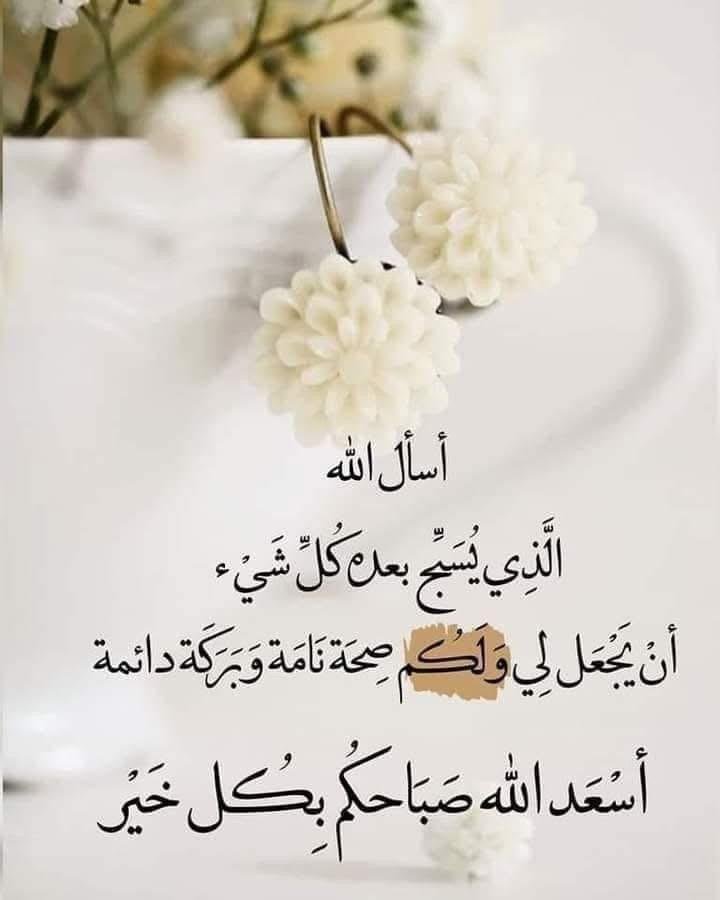 أسأل الله
الَّذِي يُسَبِّح بعده كُلِّ شَيْء
أنْ يَجْعَل لِي وَلَكُم صِحَة تَامَة وَبَرَكَة دائمة
أسْعَد الله صَبَاحكُم بِكُل خَيْر